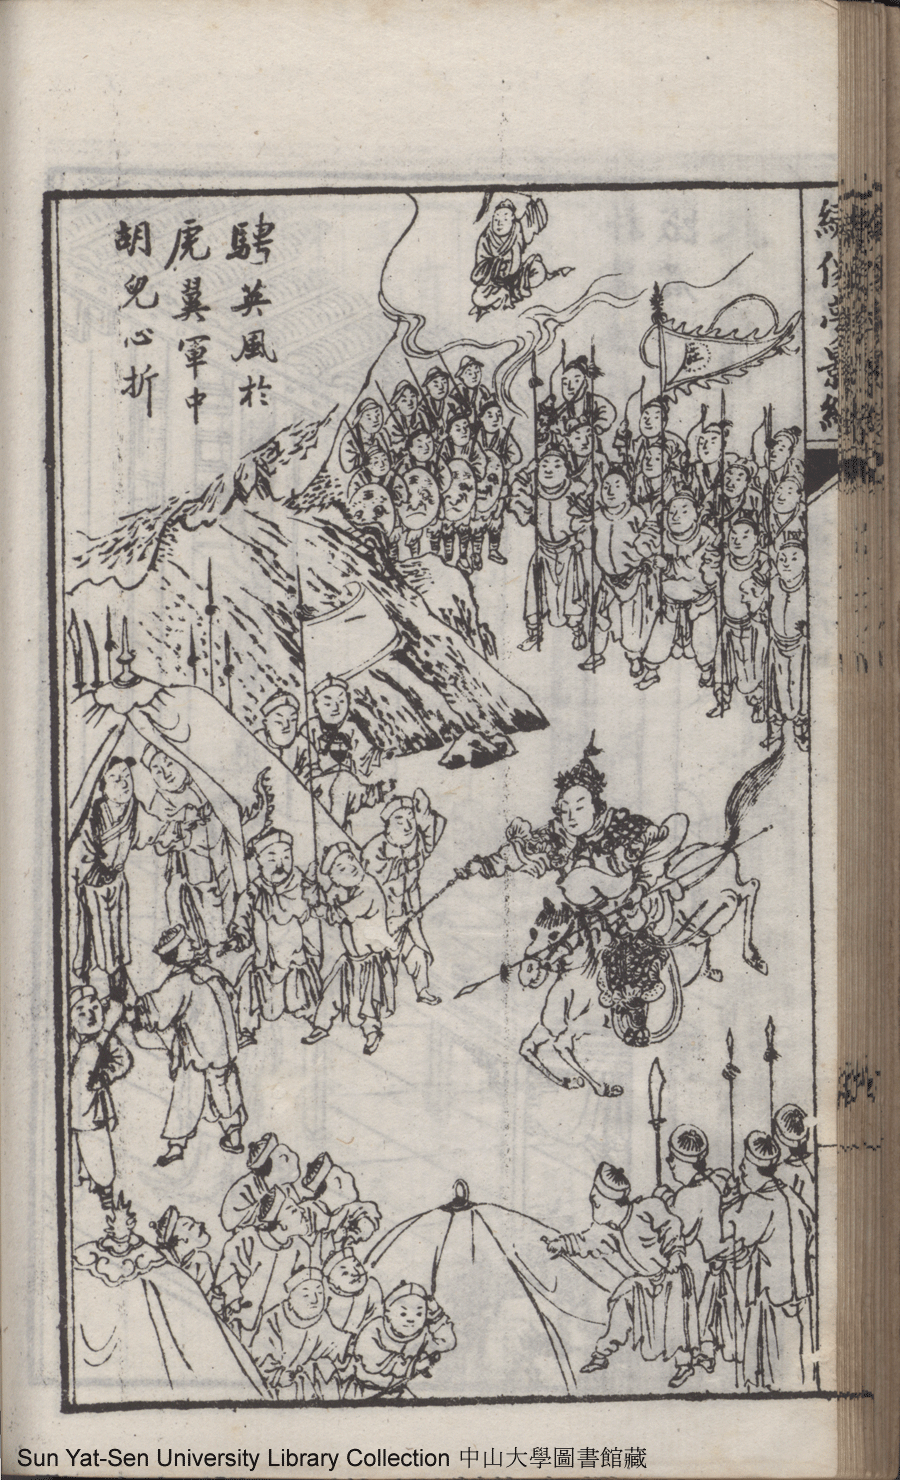 騁英風於
虎翼軍中
胡兒心折
Sun Yat-Sen University Library Collection 中山大學圖書館藏